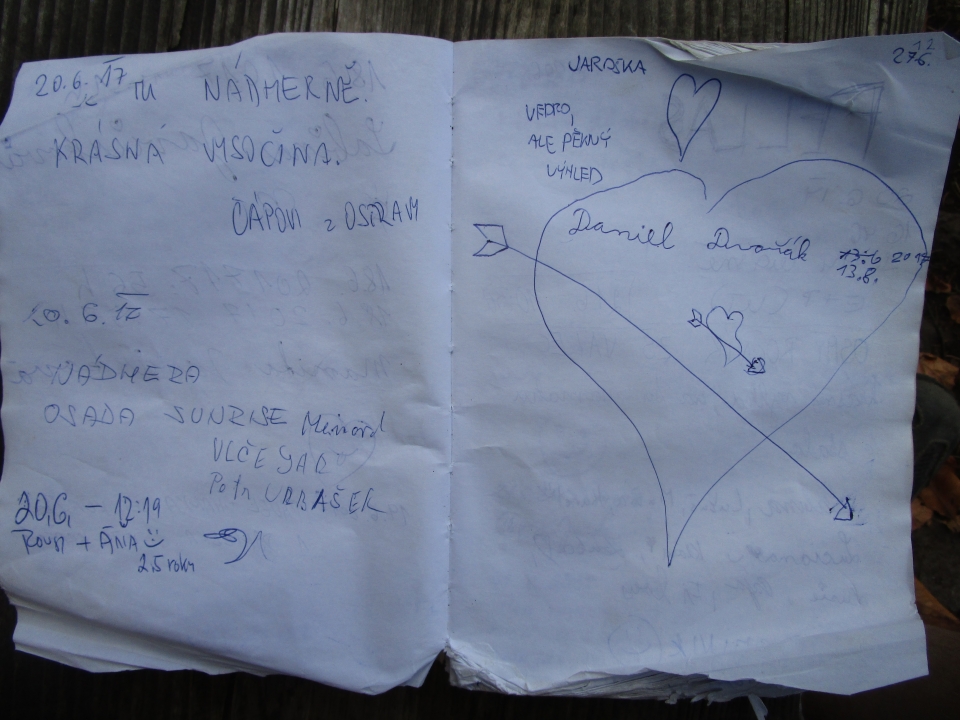 20.6.17 TU NÁDHERNĚ.
KRÁSNÁ VYSOČINA.
ČÁPOVI z OSTRAVY
20.6.17
NÁDHERA
OSADA SUNRISE
VLČE
Petr URBAŠEK
20.6. – 12:19
+ ÁŇA
2,5 roku
JAROSKA
VEDRO,
ALE PĚKNÝ
VÝHLED
Daniel Dvořák 2017
13.8.